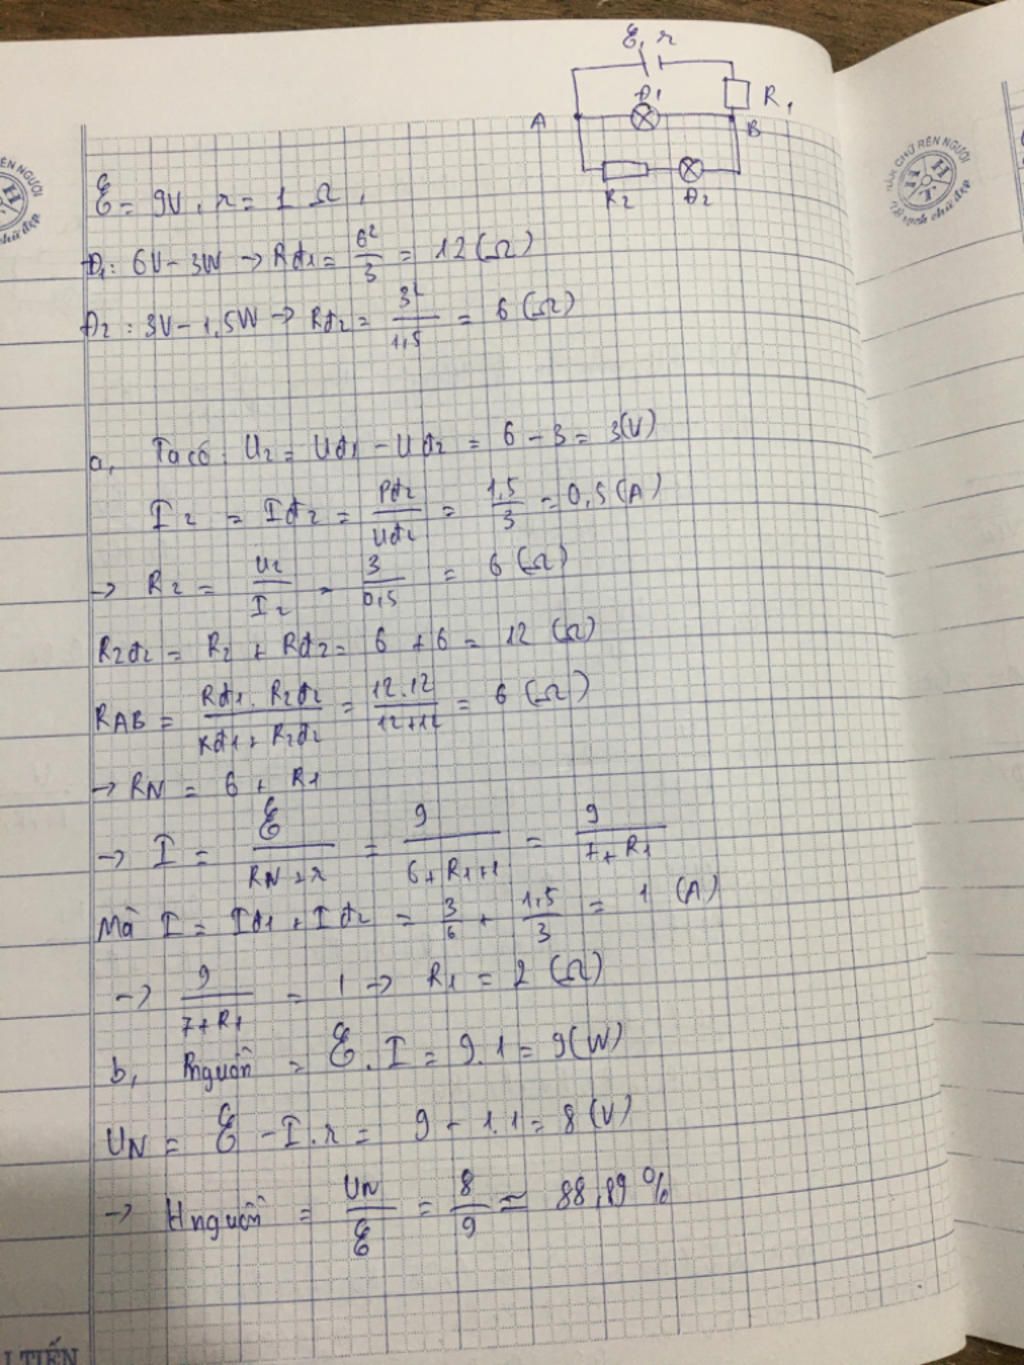 Ɛ, r
Đ1
R1
A
B
R2
Đ2
Ɛ = 9V, r = 1 Ω,
Đ1: 6V - 3W → Rđ1 = 6²/3 = 12 (Ω)
Đ2: 3V - 1,5W → Rđ2 = 3²/1,5 = 6 (Ω)
a, Ta có: U2 = Uđ1 - Uđ2 = 6 - 3 = 3(V)
I2 = Iđ2 = Pđ2/Uđ2 = 1,5/3 = 0,5 (A)
→ R2 = U2/I2 = 3/0,5 = 6 (Ω)
R2đ2 = R2 + Rđ2 = 6 + 6 = 12 (Ω)
RAB = Rđ1 . R2đ2/Rđ1 + R2đ2 = 12.12/12+12 = 6 (Ω)
→ RN = 6 + R1
→ I = Ɛ/RN + r = 9/6 + R1 + 1 = 9/7 + R1
Mà I = Iđ1 + Iđ2 = 3/6 + 1,5/3 = 1 (A)
→ 9/7 + R1 = 1 → R1 = 2 (Ω)
b, Pnguồn = Ɛ . I = 9.1 = 9(W)
UN = Ɛ - I.r = 9 - 1.1 = 8 (V)
→ Hnguồn = UN/Ɛ = 8/9 ≃ 88,89 %
I TIẾN